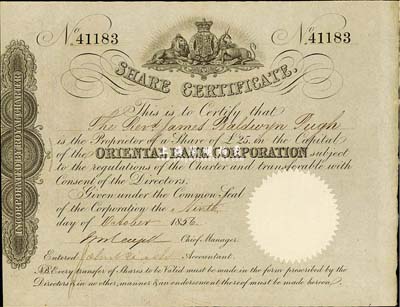 No. 41183 No. 41183
SHARE CERTIFICATE,
This is to Certify that
The Revd. James Baldwyn Pugh
is the Proprietor of a Share of £25, in the Capital
of the ORIENTAL BANK CORPORATION subject
to the regulations of the Charter and transferable with
Consent of the Directors.
Given under the Common Seal
of the Corporation the Ninth
day of October 1856
Chief Manager.
Entered Accountant.
N.B. Every transfer of Shares to be Valid must be made in the form prescribed by the
Directors & in no other manner, & an endorsement thereof must be made hereon.
INCORPORATED BY ROYAL CHARTER